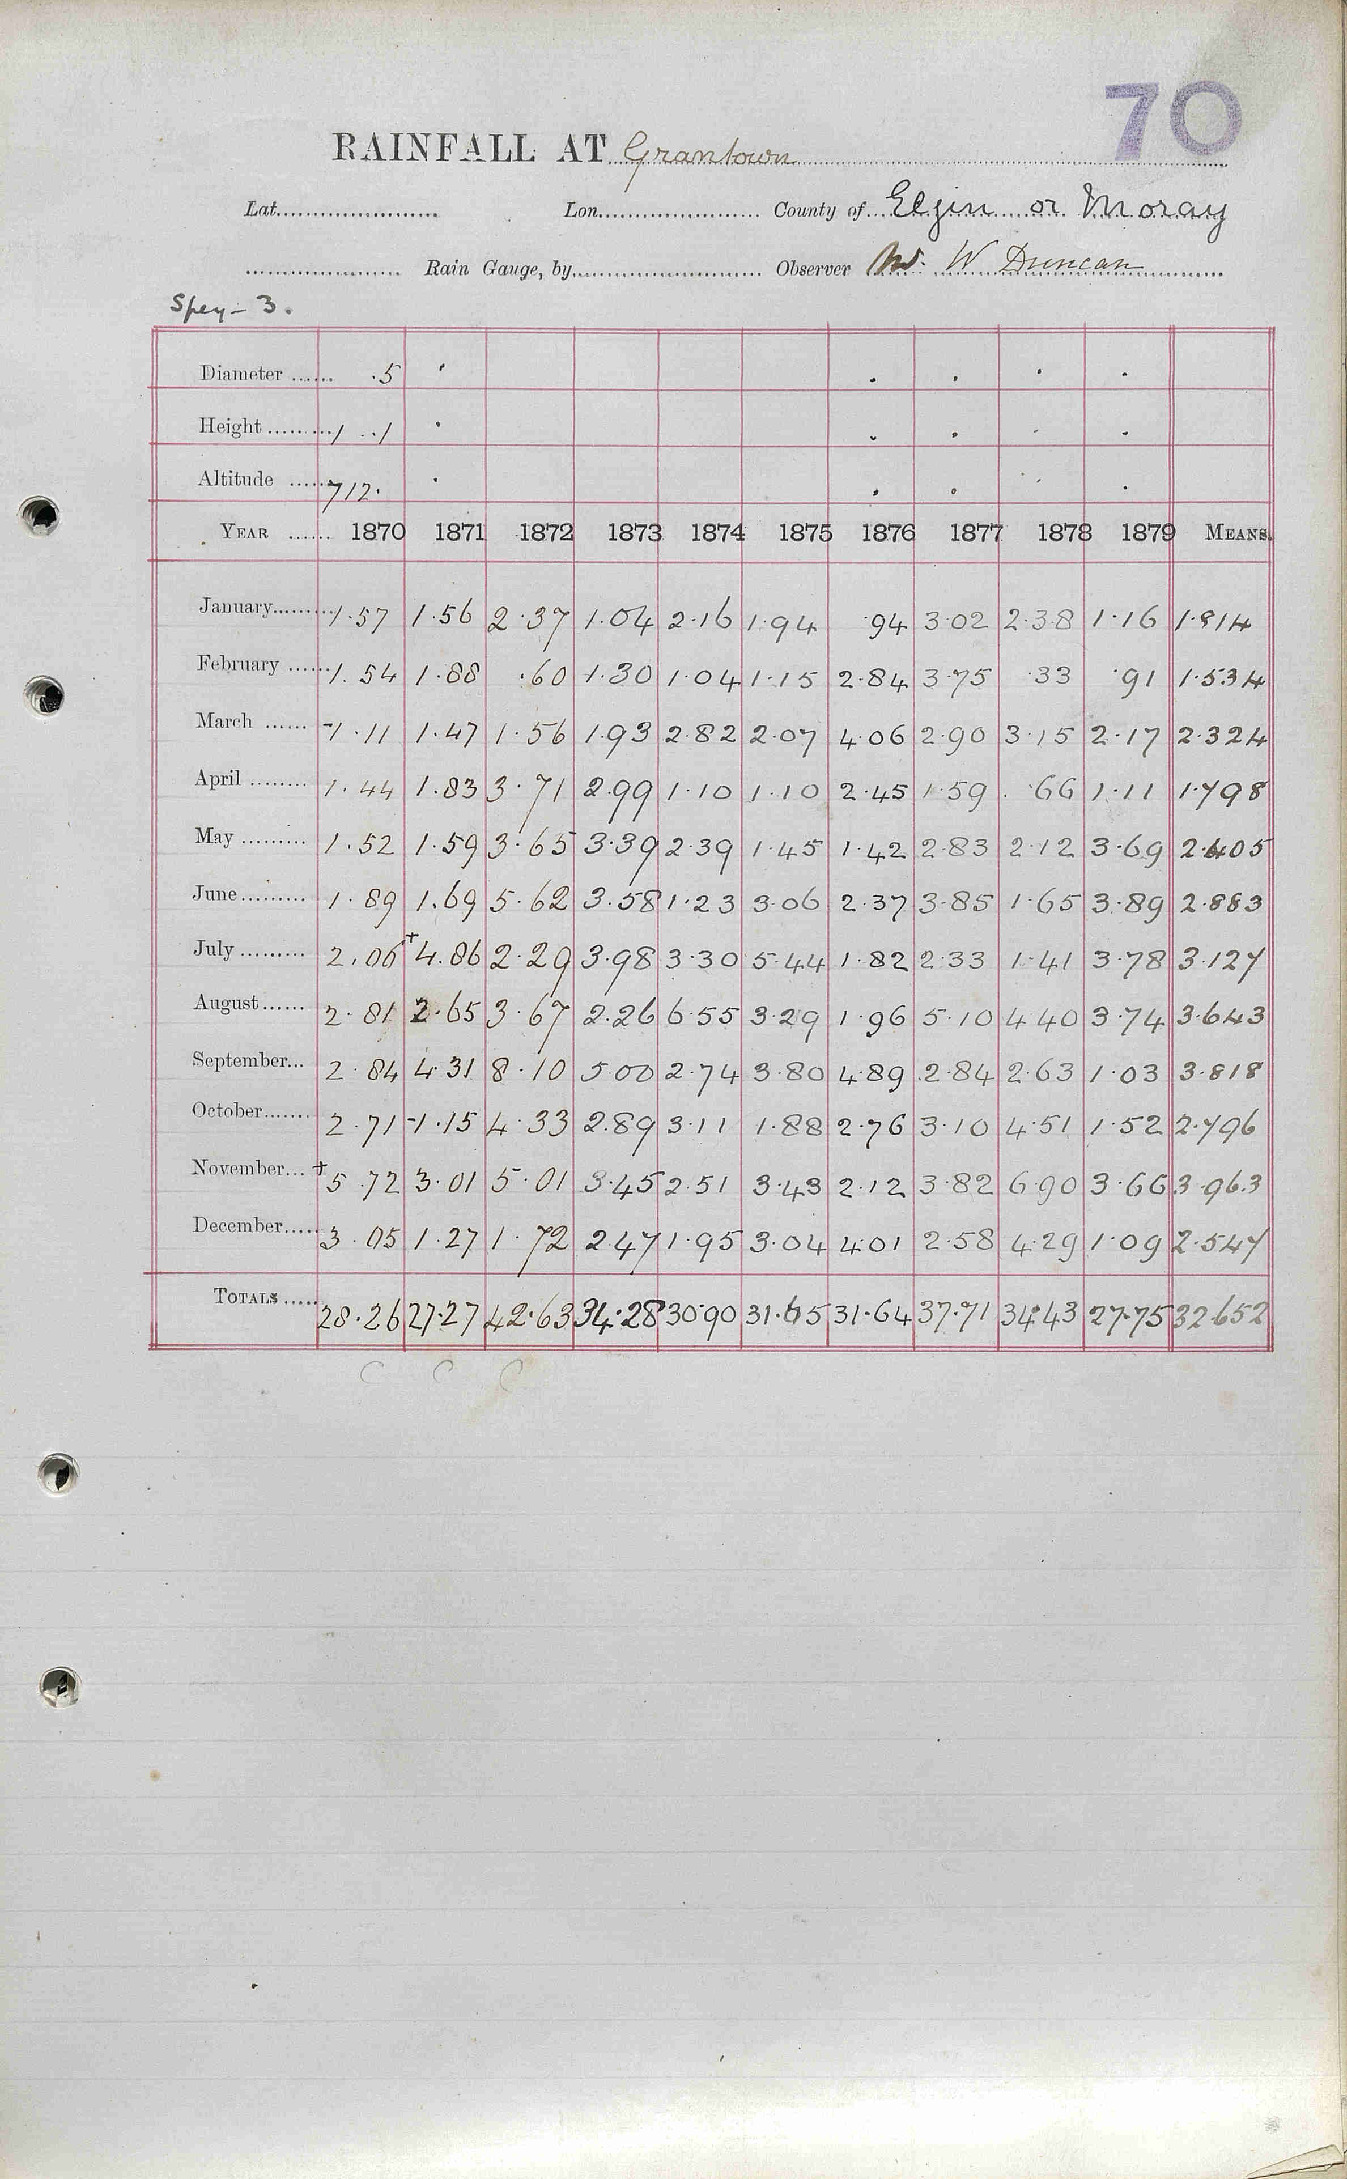 70
RAINFALL AT Grantown
Lat. Lon. County of Elgin or Moray
Rain Gauge, by Observer Mr. W Duncan
Spey - 3.
Diameter ...... .5
Height ......... 1 . . 1
Altitude ...... 712.
YEAR ...... 1870 1871 1872 1873 1874 1875 1876 1877 1878 1879 MEANS.
January......... 1.57 1.56 2.37 1.04 2.16 1.94 .94 3.02 2.38 1.16 1.814
February ...... 1.54 1.88 .60 1.30 1.04 1.15 2.84 3.75 .33 .91 1.534
March ...... -1.11 1.47 1.56 1.93 2.82 2.07 4.06 2.90 3.15 2.17 2.324
April ......... 1.44 1.83 3.71 2.99 1.10 1.10 2.45 1.59 .66 1.11 1.798
May ......... 1.52 1.59 3.65 3.39 2.39 1.45 1.42 2.83 2.12 3.69 2.405
June ......... 1.89 1.69 5.62 3.58 1.23 3.06 2.37 3.85 1.65 3.89 2.883
July ......... 2.06 +4.86 2.29 3.98 3.30 5.44 1.82 2.33 1.41 3.78 3.127
August...... 2.81 2.65 3.67 2.26 6.55 3.29 1.96 5.10 4.40 3.74 3.643
September... 2.84 4.31 8.10 5.00 2.74 3.80 4.89 2.84 2.63 1.03 3.818
October....... 2.71 -1.15 4.33 2.89 3.11 1.88 2.76 3.10 4.51 1.52 2.796
November... +5.72 3.01 5.01 3.45 2.51 3.43 2.12 3.82 6.90 3.66 3.963
December..... 3.05 1.27 1.72 2.47 1.95 3.04 4.01 2.58 4.29 1.09 2.547
TOTALS ..... 28.26 27.27 42.63 34.28 30.90 31.65 31.64 37.71 34.43 27.75 32.652
C C C